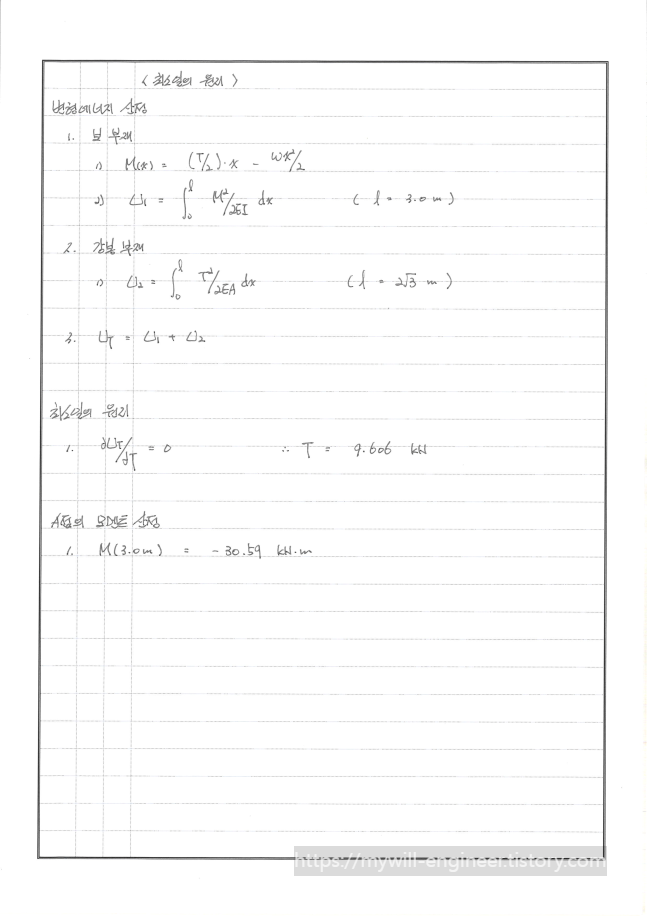 < 최소일의 원리 >
변형에너지 산정
1. 보 부재
1) M(x) = (T/2)·x - wx²/2
2) U₁ = ∫₀ˡ M²/2EI dx ( l = 3.0 m )
2. 강봉 부재
1) U₂ = ∫₀ˡ T²/2EA dx ( l = 2√3 m )
3. U_T = U₁ + U₂
최소일의 원리
1. ∂U_T/∂T = 0 ∴ T = 9.606 kN
A점의 모멘트 산정
1. M(3.0m) = -30.59 kN·m
https://mywill-engineer.tistory.com